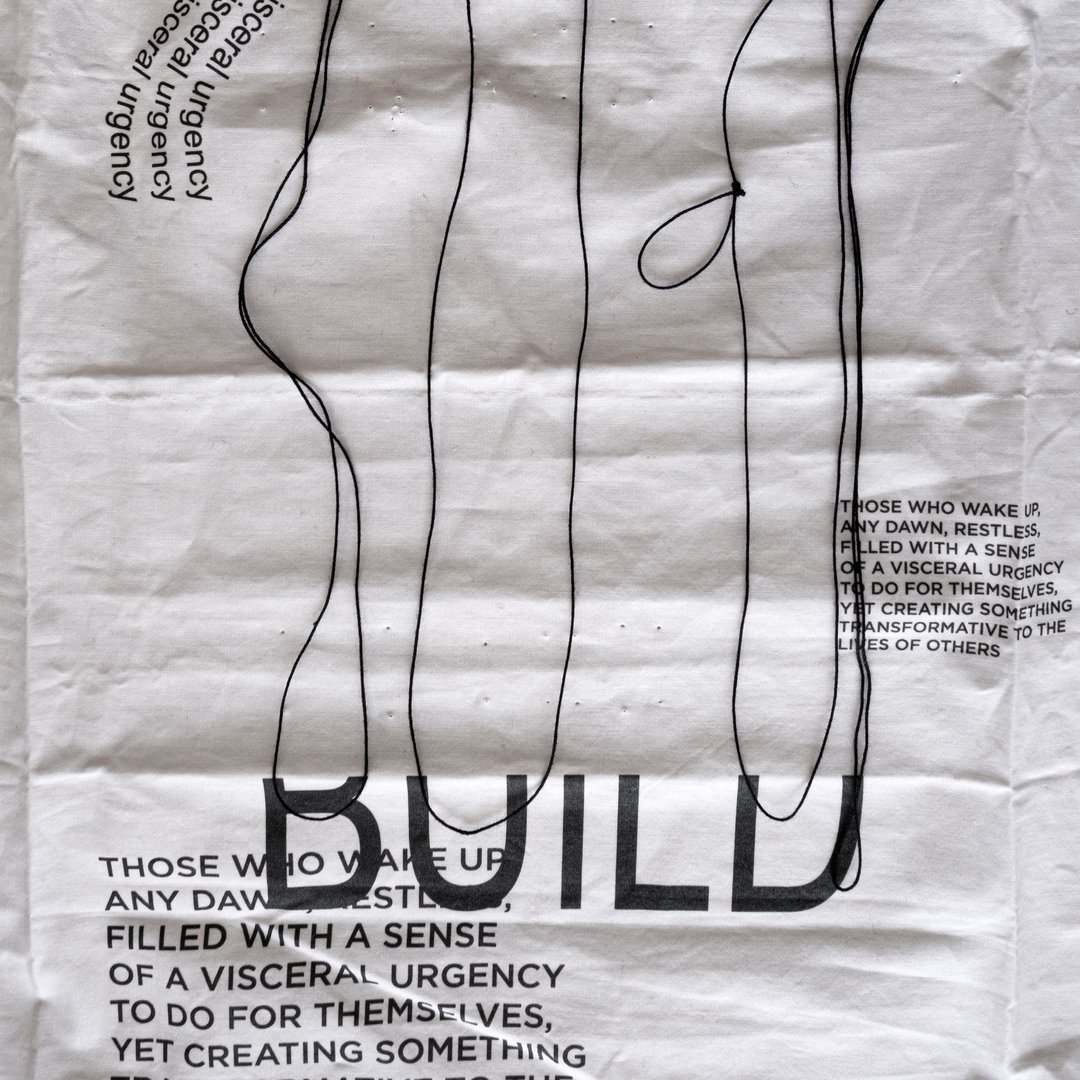 visceral urgency
visceral urgency
visceral urgency
THOSE WHO WAKE UP,
ANY DAWN, RESTLESS,
FILLED WITH A SENSE
OF A VISCERAL URGENCY
TO DO FOR THEMSELVES,
YET CREATING SOMETHING
TRANSFORMATIVE TO THE
LIVES OF OTHERS
BUILD
THOSE WHO WAKE UP,
ANY DAWN, RESTLESS,
FILLED WITH A SENSE
OF A VISCERAL URGENCY
TO DO FOR THEMSELVES,
YET CREATING SOMETHING
TRANSFORMATIVE TO THE